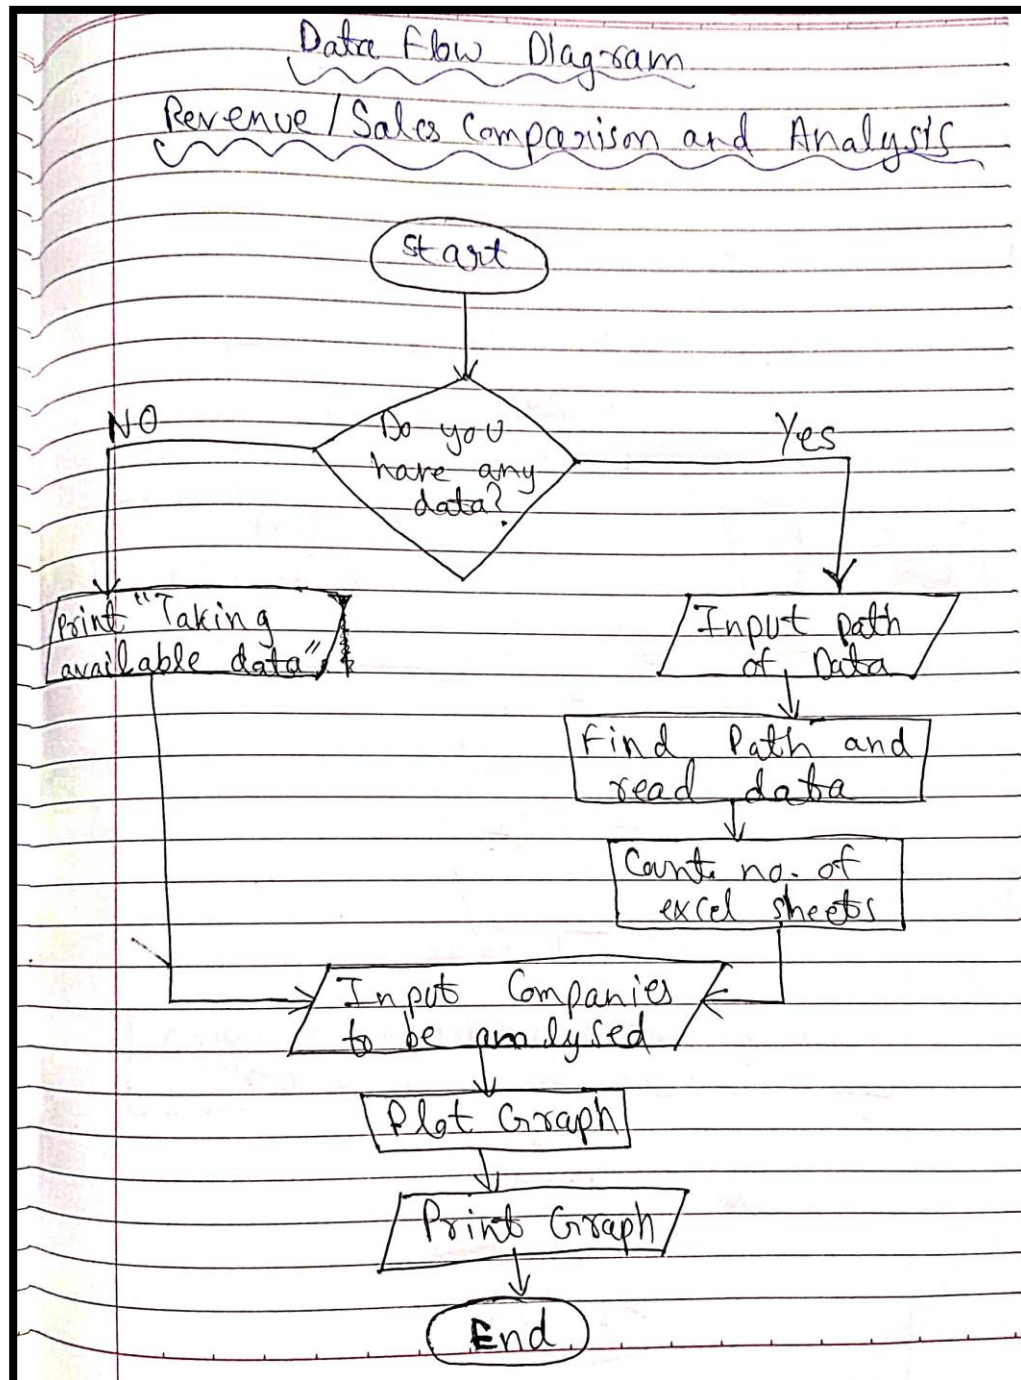 Data Flow Diagram
Revenue/Sales Comparison and Analysis
Start
Do you
have any
data?
NO
Yes
Print "Taking
available data"
Input path
of Data
Find Path and
read data
Count no. of
excel sheets
Input Companies
to be analysed
Plot Graph
Print Graph
End